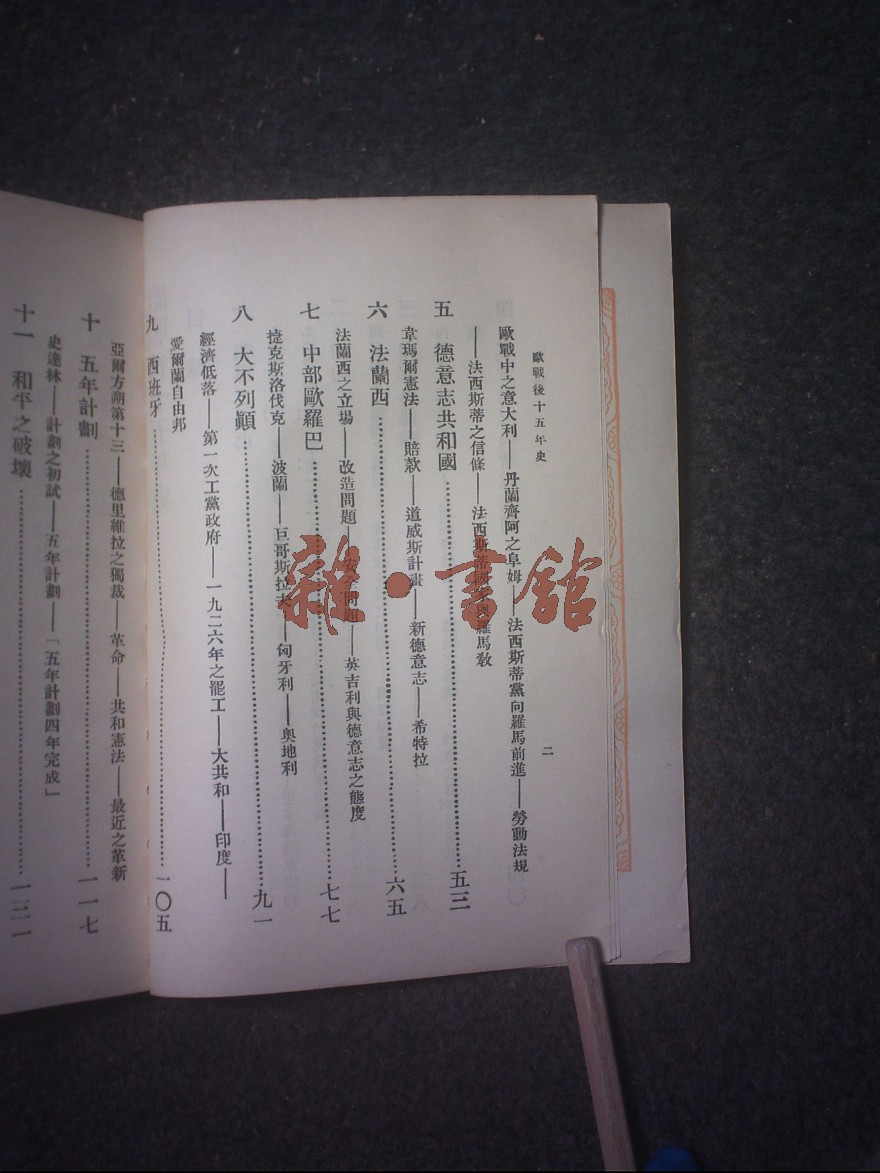 歐戰後十五年史 二
歐戰中之意大利——丹蘭齊阿之阜姆——法西斯蒂黨向羅馬前進——勞動法規
——法西斯蒂之信條——法西斯蒂與羅馬教
五 德意志共和國……五三
韋瑪爾憲法——賠款——道威斯計畫——新德意志——希特拉
六 法蘭西……六五
法蘭西之立場——改造問題——安全問題——英吉利與德意志之態度
七 中部歐羅巴……七七
捷克斯洛伐克——波蘭——巨哥斯拉夫——匈牙利——奧地利
八 大不列顛……九一
經濟低落——第一次工黨政府——一九二六年之罷工——大共和——印度——
愛爾蘭自由邦
九 西班牙……一〇五
亞爾方朔第十三——德里維拉之獨裁——革命——共和憲法——最近之革新
十 五年計劃……一一七
史達林——計劃之初試——五年計劃——「五年計劃四年完成」
十一 和平之破壞……一三一
雜·書館